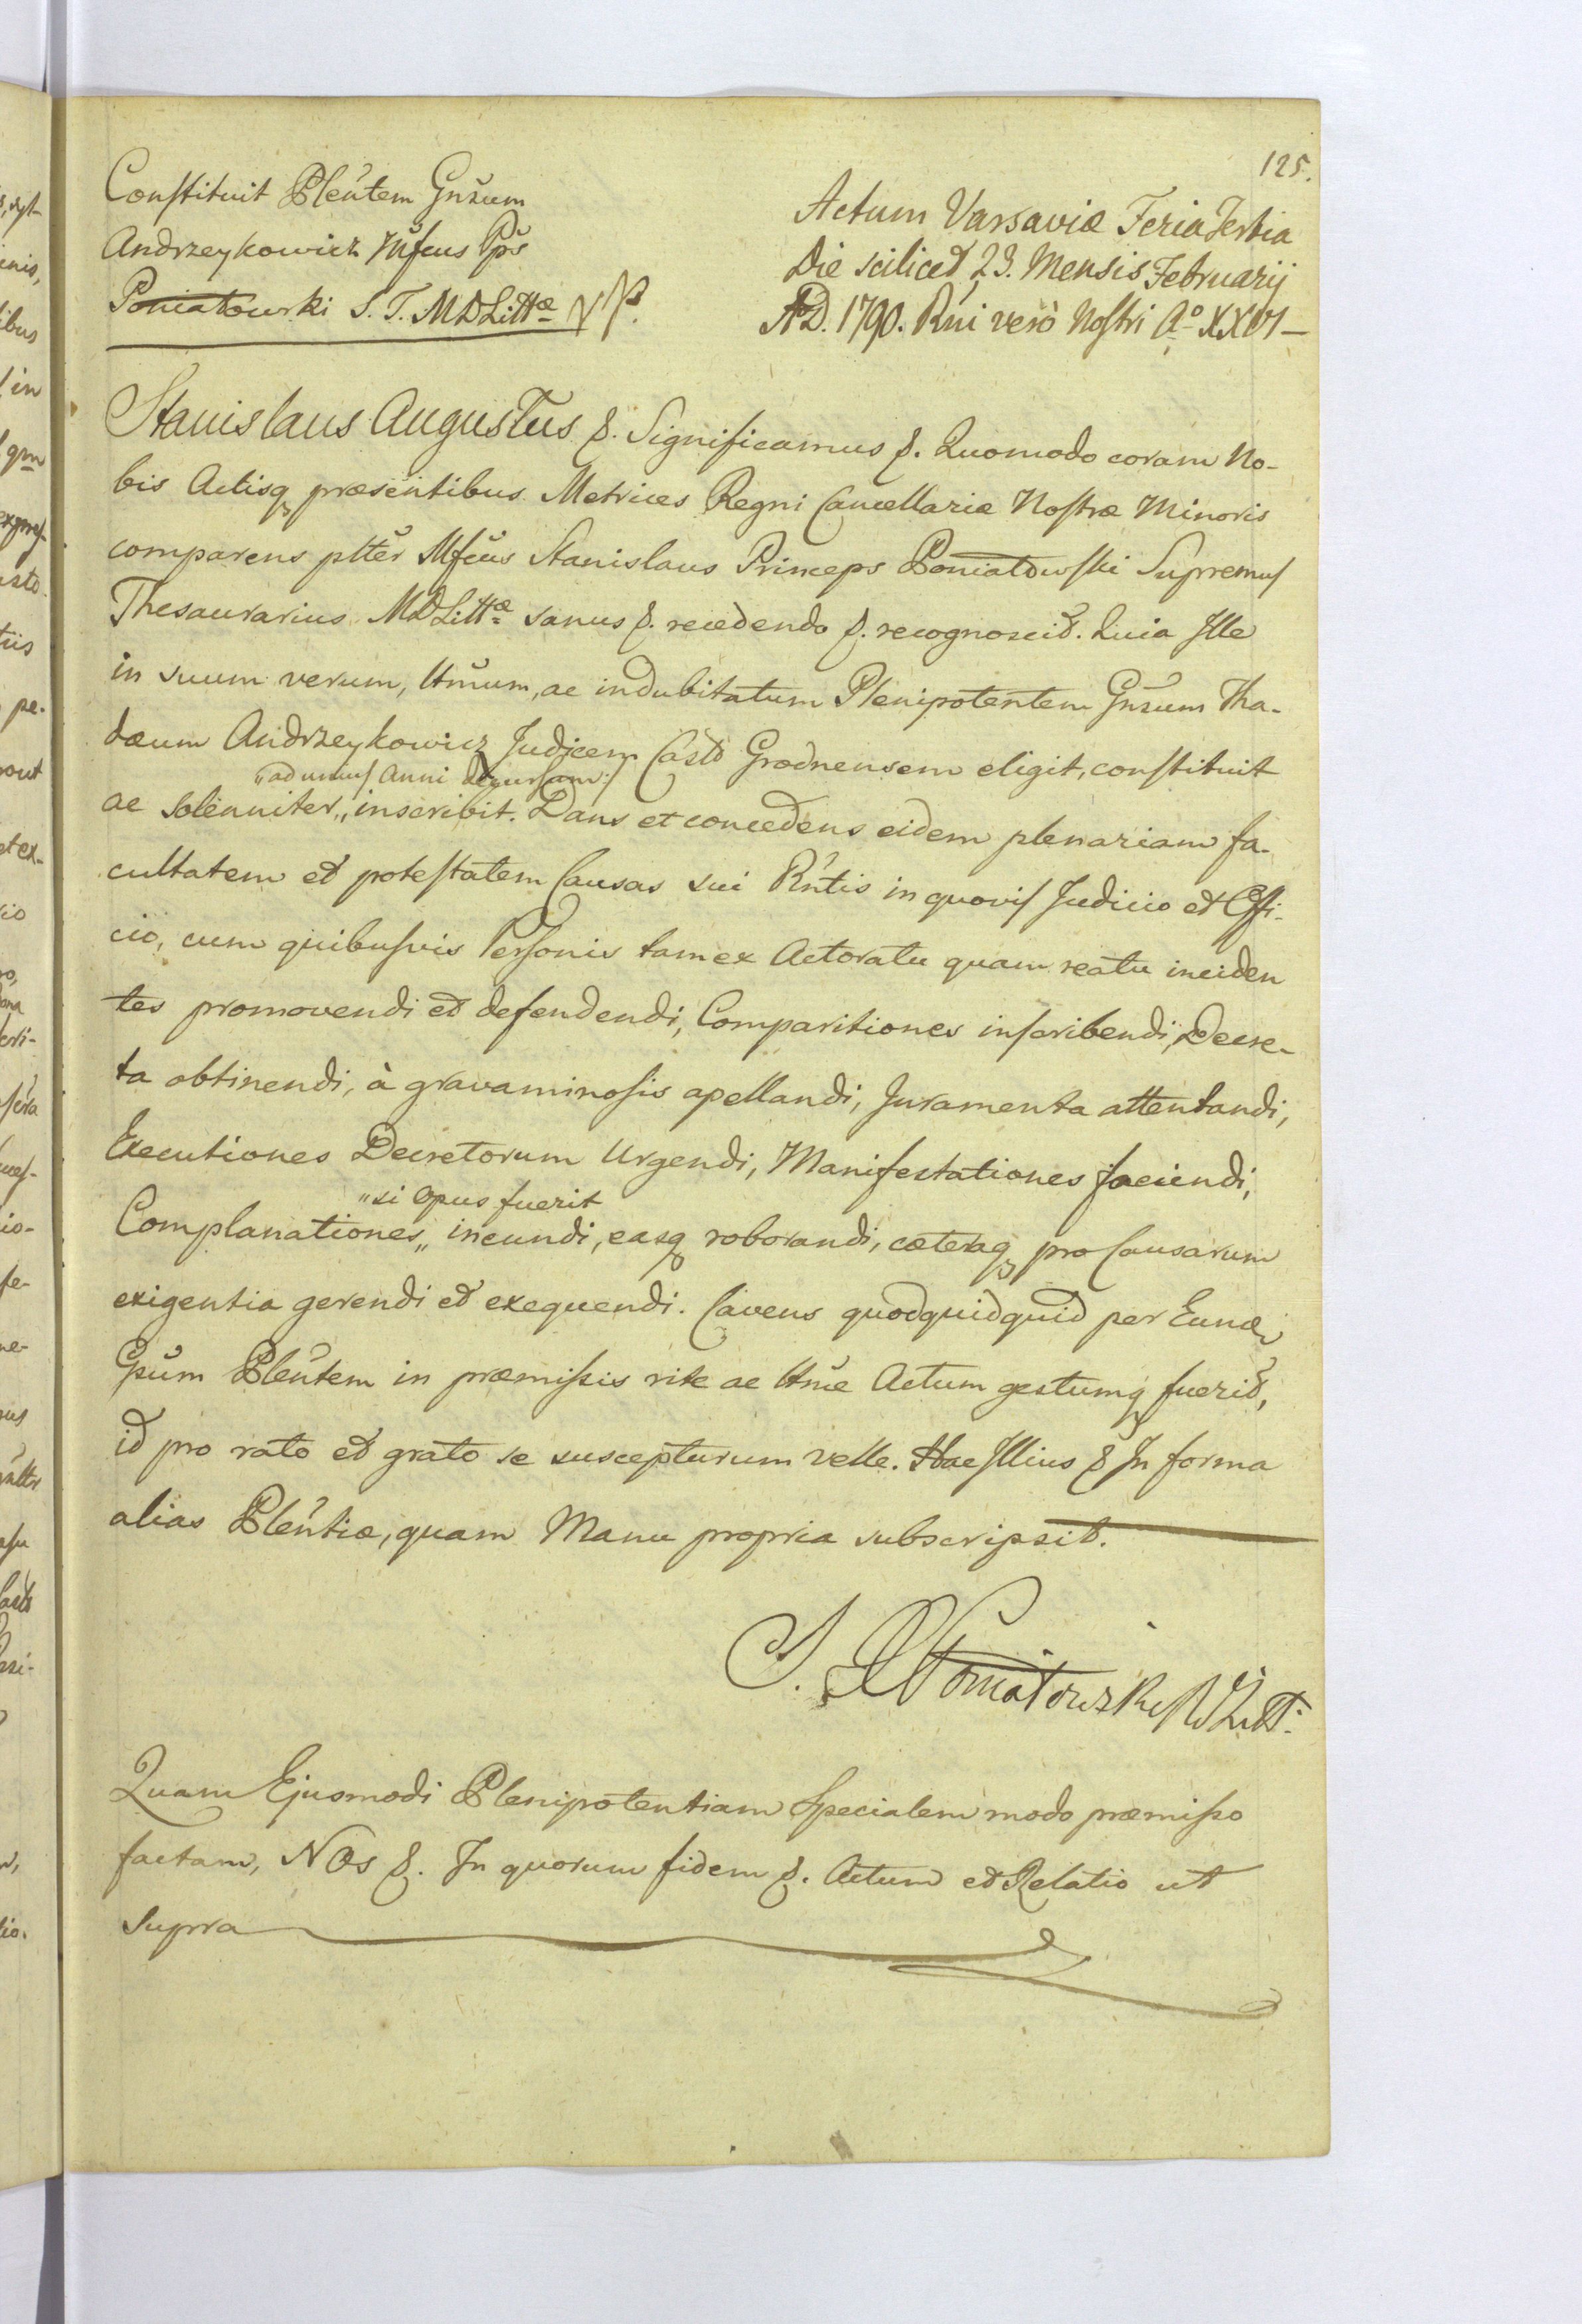 125.
Constituit Plẽntem Gnsum
Andrzeykowicz Mfcus Pps
Poniatowski S. T. MDLittæ
Actum Varsaviæ Feria Tertia
Die scilicet 23. Mensis Februarij
AD. 1790. Rni verò Nostri Aº XXVI
Stanislaus Augustus &. Significamus &. Quomodo coram No-
bis Actisq præsentibus Metrices Regni Cancellariæ Nostræ Minoris
comparens pltter Mfcus Stanislaus Princeps Poniatowski Supremus
Thesaurarius MDLittæ sanus &. recedendo &. recognoscit. Quia Ille
in suum verum, lttmum, ac indubitatum Plenipotentem Gnsum Tha-
dæum Andrzeykowicz Judicem Castr Grodnensem eligit, constituit
„ad unius Anni decursum:/
ac Solenniter„ inscribit. Dans et concedens eidem plenariam fa-
cultatem et potestatem Causas sui Rntis in quovis Judicio et Offi-
cio, cum quibusvis Personis tam ex Actoratu quam reatu inciden
tes promovendi et defendendi, Comparitiones inscribendi, Decre-
ta obtinendi, à gravaminosis apellandi, Juramenta attentandi,
Executiones Decretorum Urgendi, Manifestationes faciendi,
„si Opus fuerit
Complanationes„ ineundi, easq roborandi, cæteraq pro Causarum
exigentia gerendi et exequendi. Cavens quodquidquid per Eund
Gsum Plentem in præmissis rite ac lttme Actum gestumq fuerit,
id pro rato et grato se suscepturum velle. Hac Illius & In forma
alias Plentiæ, quam Manu propria subscripsit.
S. Poniatowski
Quam Ejusmodi Plenipotentiam Specialem modo præmisso
factam, NOs &. In quorum fidem &. Actum et Relatio ut
Supra